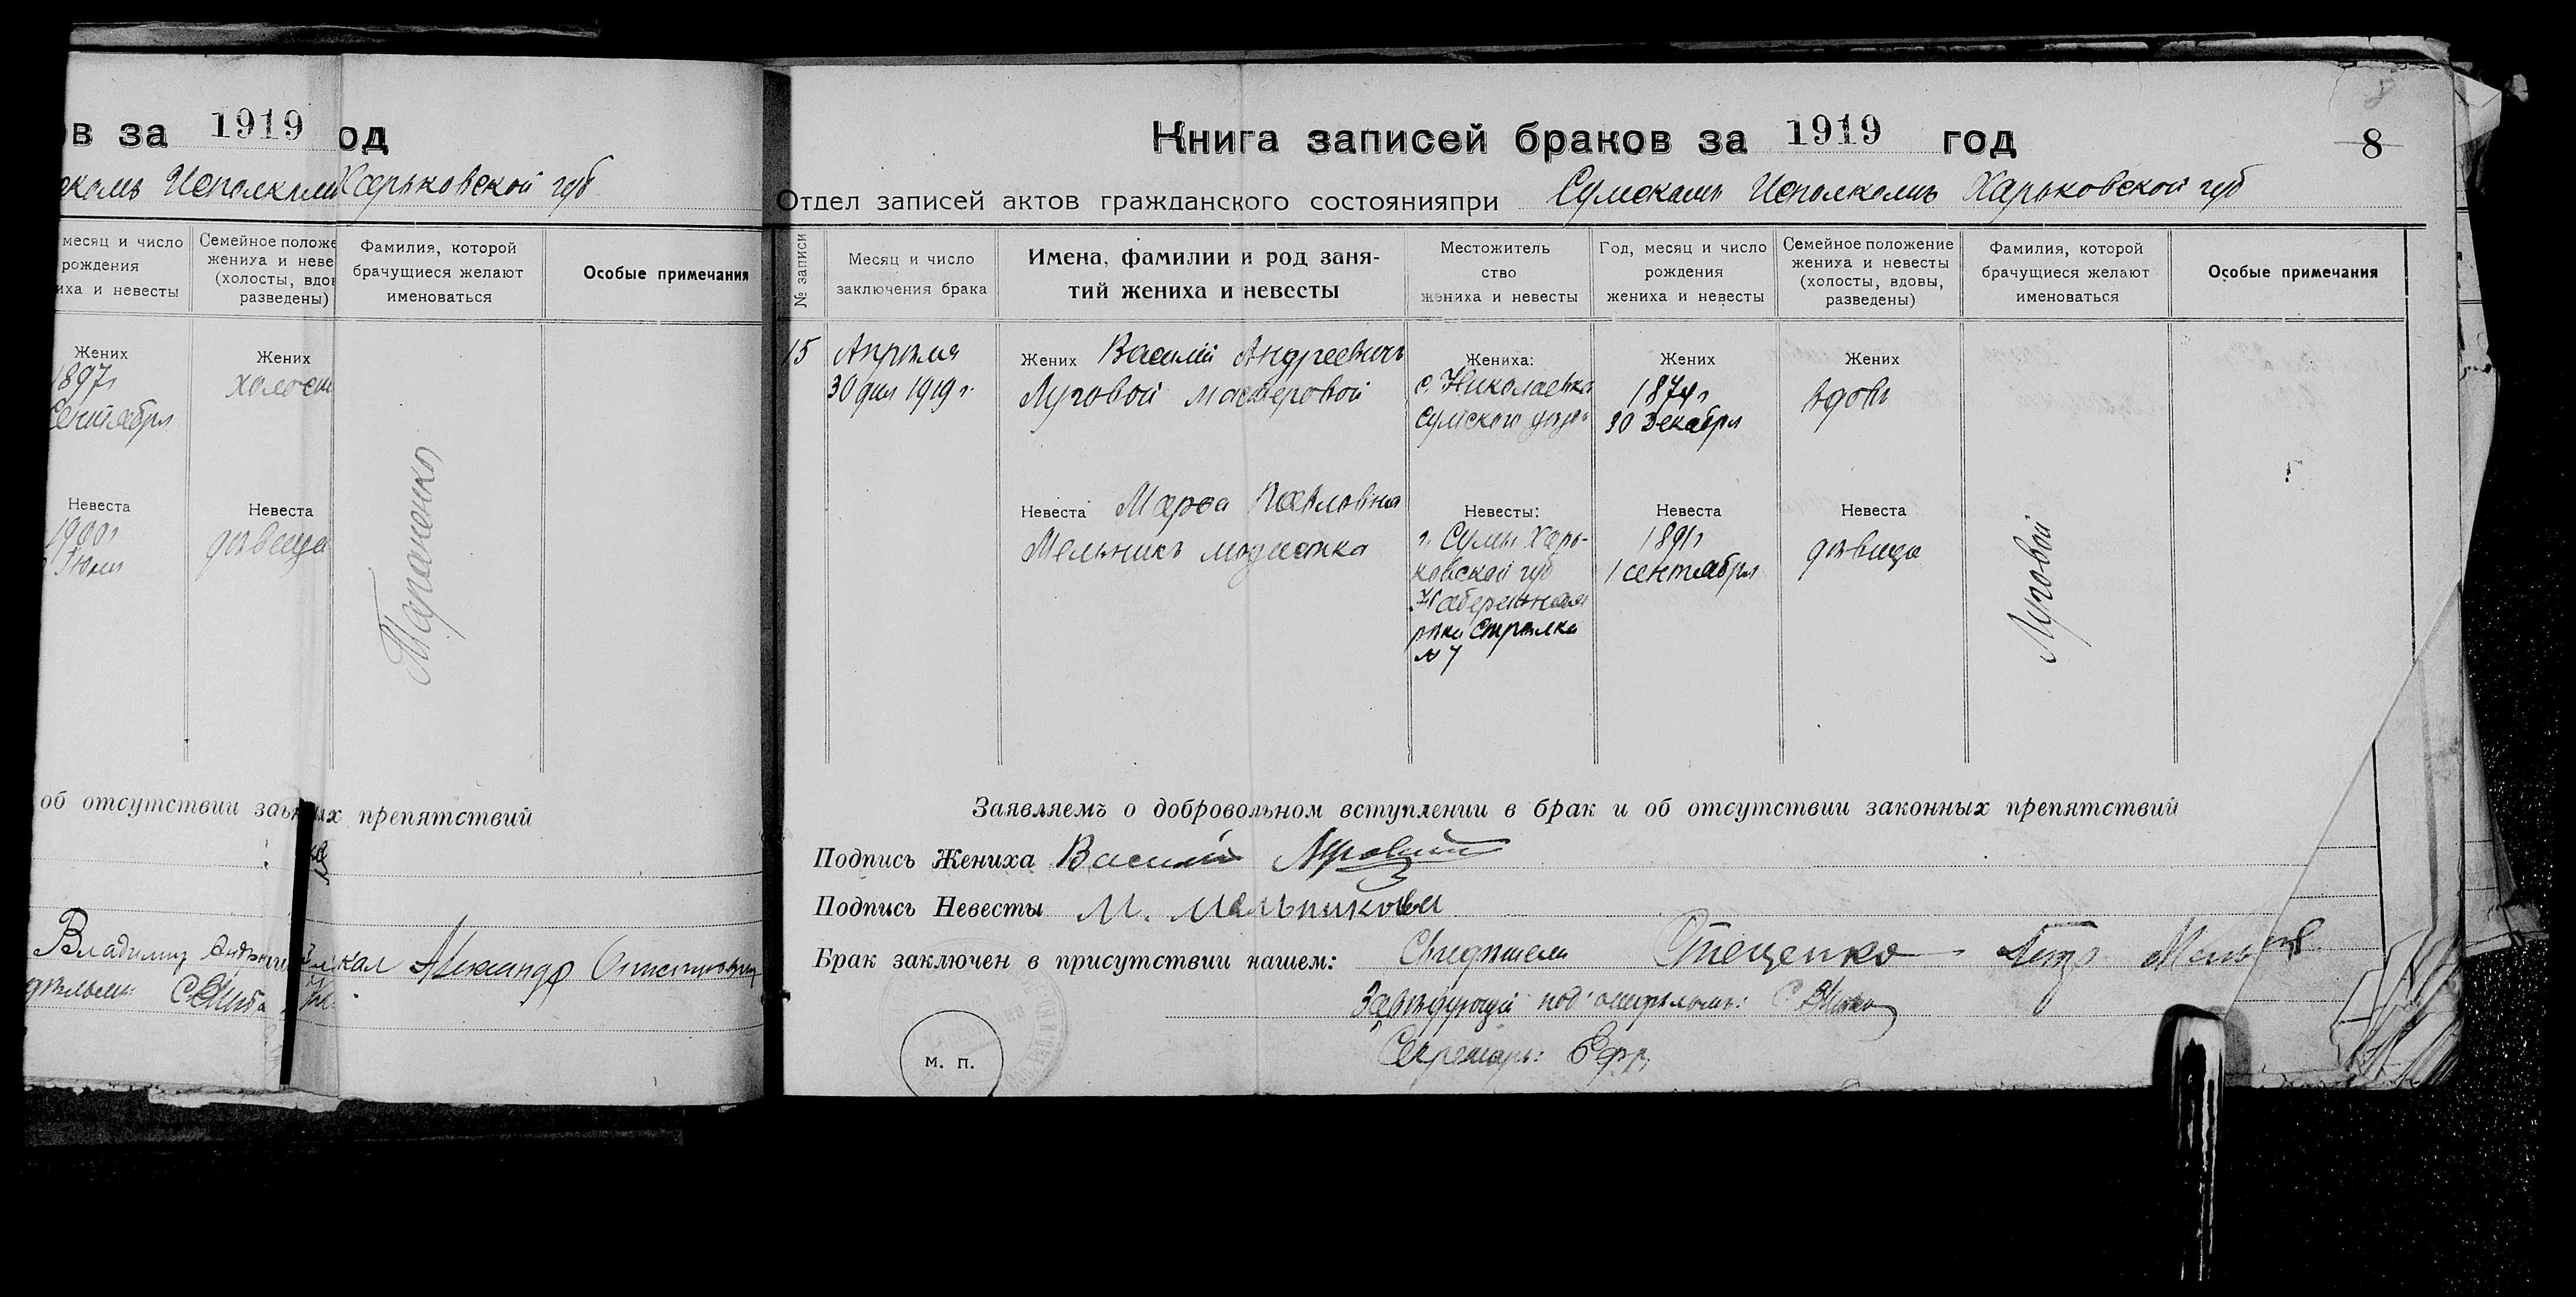 ов за 1919 од
Исполкоми Харьковской губ
месяц и число
рождения
иха и невесты
Семейное положе
жениха и неве
(холосты, вдов
разведены)
Фамилия, которой
брачущиеся желают
именоваться
Особые примечания
Жених
1897г
Сентября
Жених
холост
Невеста
1900г
Июля
Невеста
дѣвица
Тараненко
об отсутствии зак
ых препятствий
Владимир
Александр
8
Книга записей браков за 1919 год
8
Отдел записей актов гражданского состоянияпри Сумскомъ Исполкомъ Харьковской губ
№ записи
Месяц и число
заключения брака
Имена, фамилии и род заня-
тий жениха и невесты
Местожитель
ство
жениха и невесты
Год, месяц и число
рождения
жениха и невесты
Семейное положение
жениха и невесты
(холосты, вдовы,
разведены)
Фамилия, которой
брачущиеся желают
именоваться
Особые примечания
15
Апрѣля
30 дня 1919 г.
Жених Василий Андреевичъ
Луговой мастеровой
Жениха:
с. Николаевка
Сумского уѣзда
Жених
1874г
30 Декабря
Жених
вдовъ
Невеста Марѳа Павловна
Мельникъ модистка
Невесты:
г. Сумы Харь-
ковской губ
Набережная
рѣки Стрѣлка
№ 7
Невеста
1891г
1 сентября
Невеста
дѣвица
Луговой
Заявляемъ о добровольном вступлении в брак и об отсутствии законных препятствий
Подпись Жениха Василий Луговий
Подпись Невесты М. Мельникова
Брак заключен в присутствии нашем: Свидѣтели Стеценко Петр
Завѣдующій под'отдѣломъ:
Секретарь:
м. п.